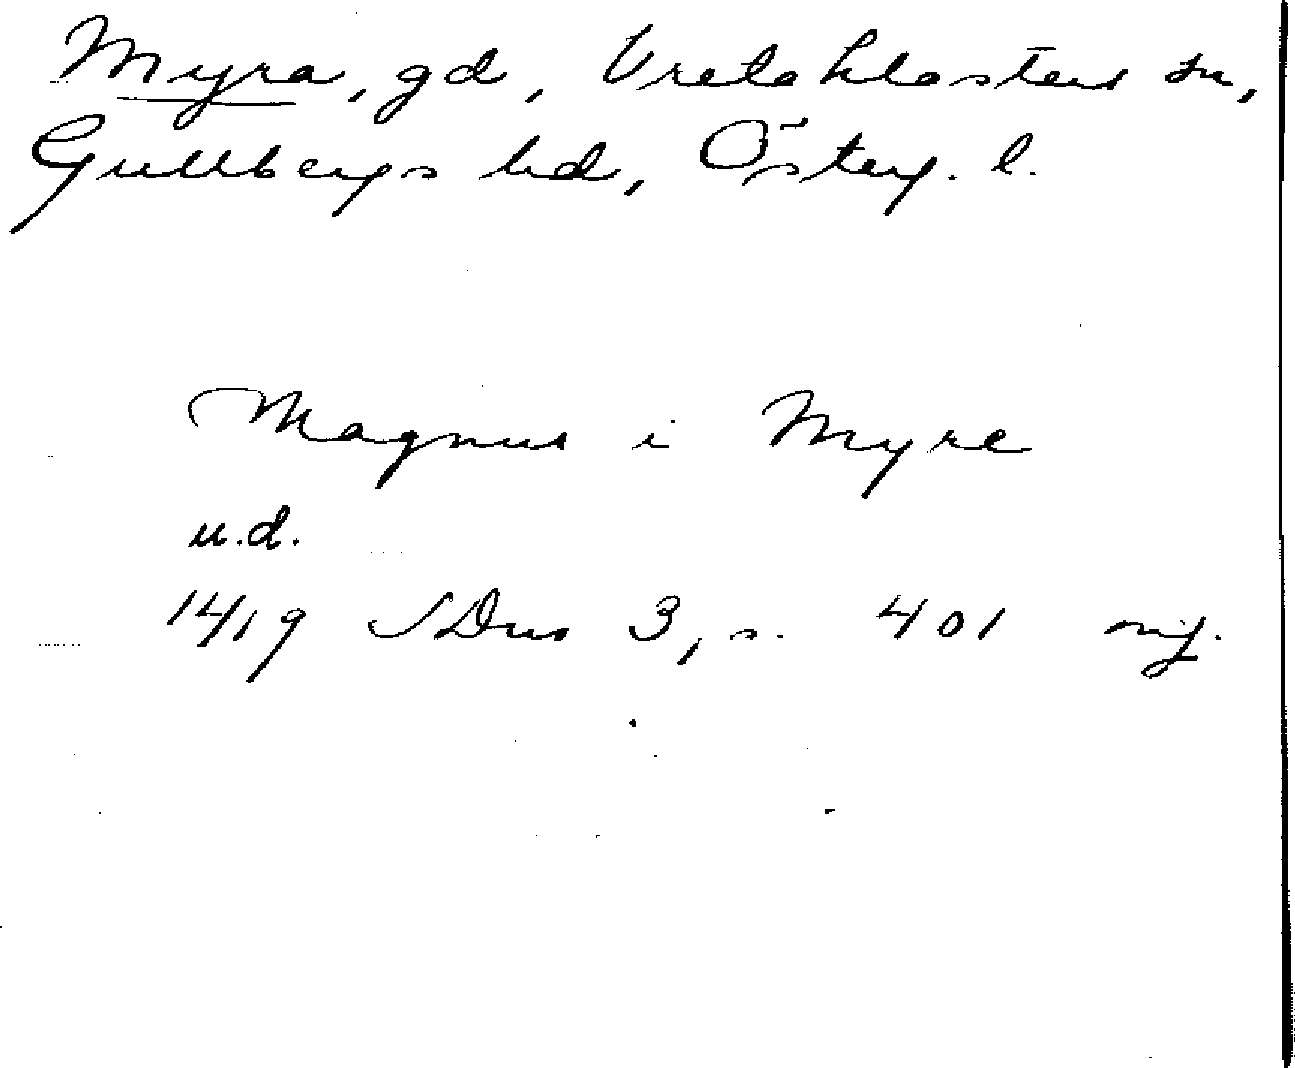 Myra, gd, Vreta klosters sn,
Gullbergs hd, Österg. l.
Magnus i Myre
u.d.
1419 SDns 3, s. 401 nif.